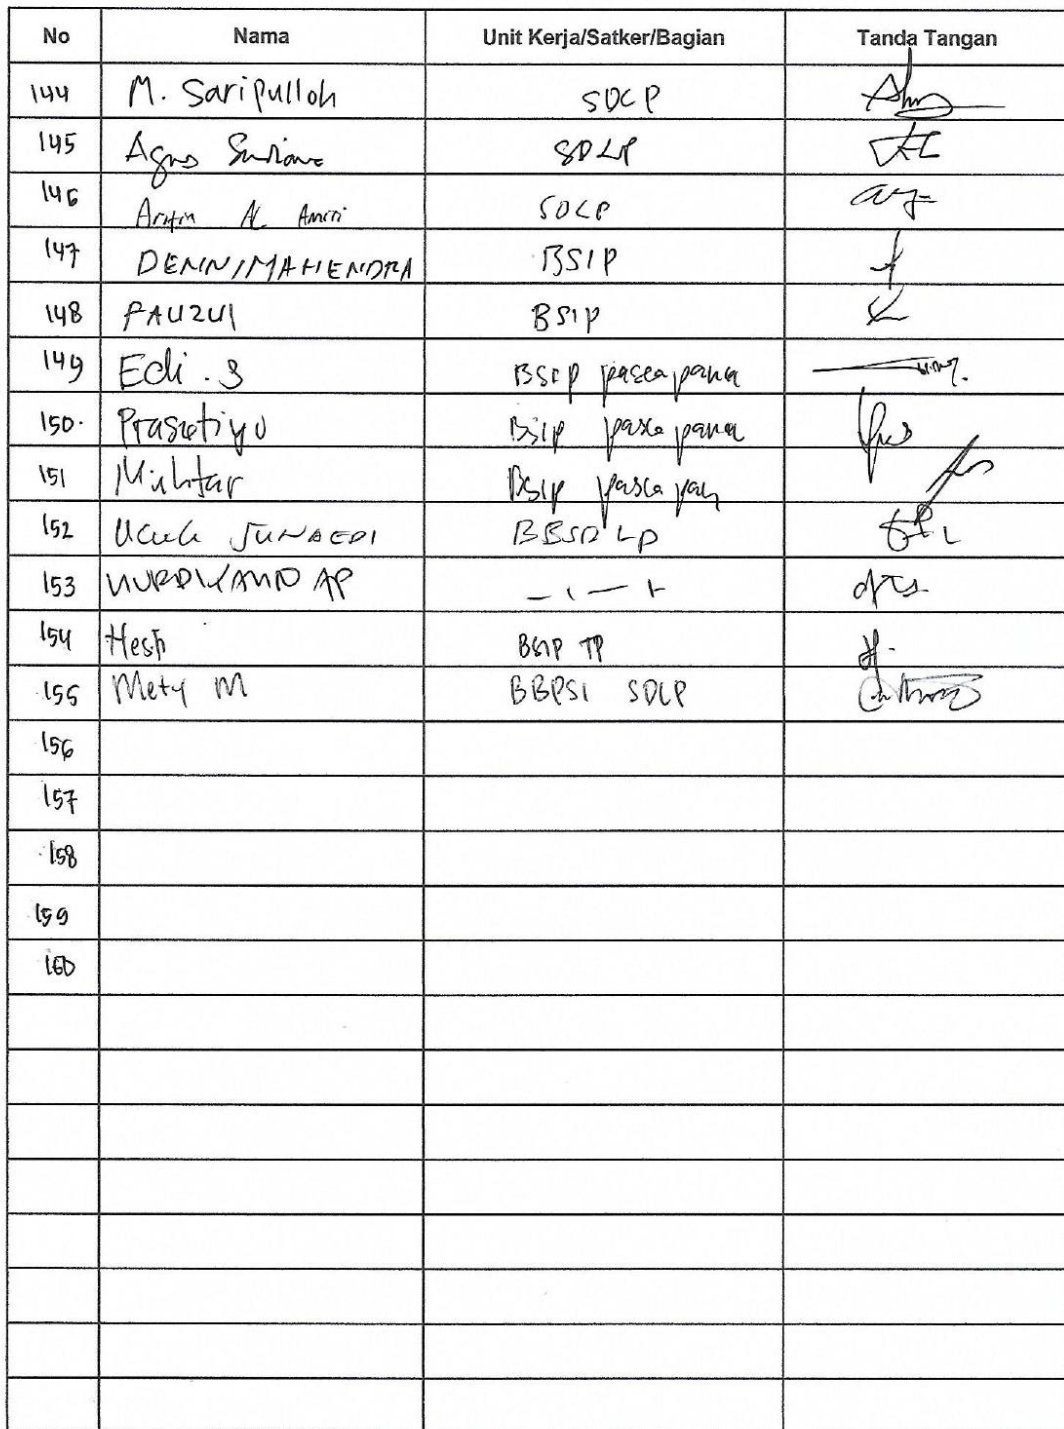 No Nama Unit Kerja/Satker/Bagian Tanda Tangan
144 M. Saripulloh SDLP
145 Agus SDLP
146 Al Amri SDLP
147 DENNI MAHENDRA BSIP
148 FAUZUL BSIP
149 Edi . S BSIP pasca panen
150. Prasetiyo BSIP pasca panen
151 Mukhtar BSIP pasca pan
152 Ucuk JUNAEDI BBSDLP
153 NURDIYANTO AP
154 Hesti BSIP TP
155 Mety M BBPSI SDLP
156
157
158
159
160